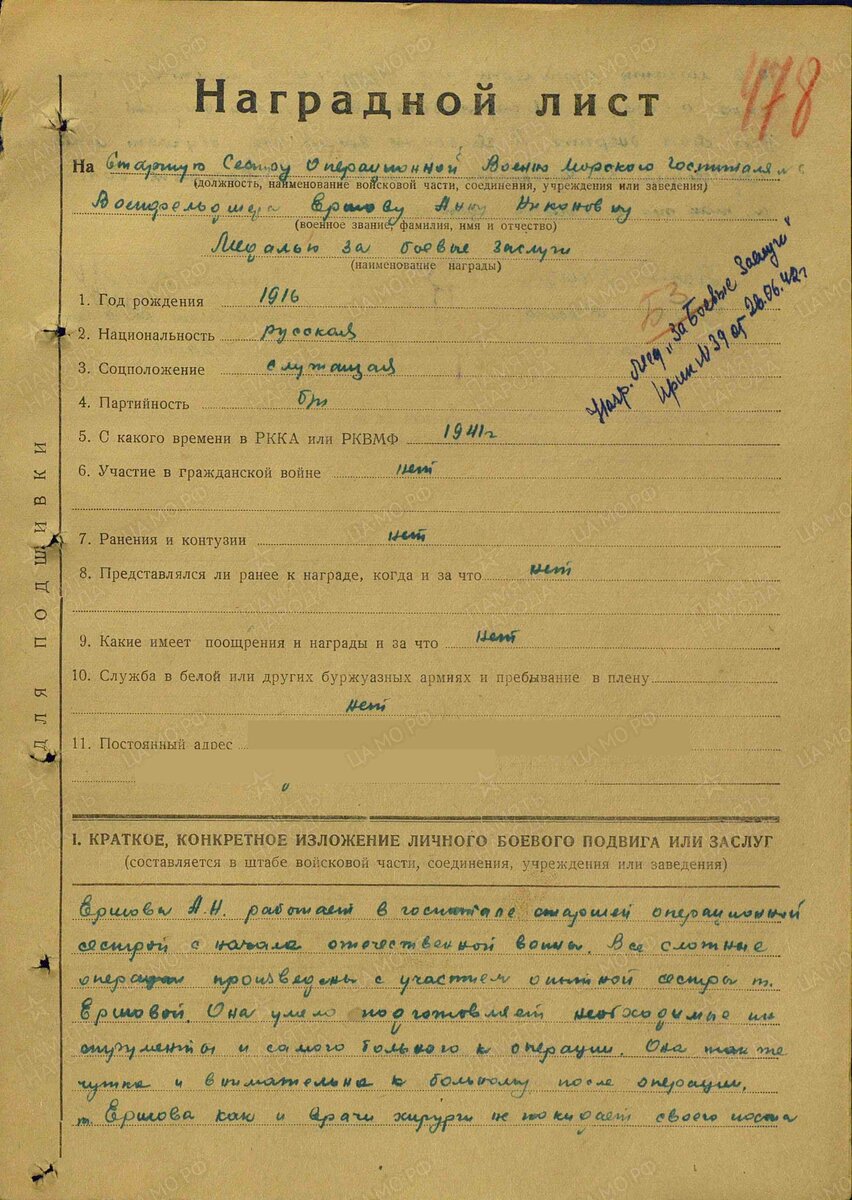 478
Наградной лист
На Старшую Сестру Операционной Военно Морского Госпиталя
(должность, наименование войсковой части, соединения, учреждения или заведения)
Военфельдшера Ершову Анну Никоновну
(военное звание, фамилия, имя и отчество)
Медалью за боевые заслуги
(наименование награды)
БЗ
Нагр. Мед. „За Боевые Заслуги"
Прик № 39 от 26.06.42 г
1. Год рождения 1916
2. Национальность русская
3. Соцположение служащая
4. Партийность б/п
5. С какого времени в РККА или РКВМФ 1941г
6. Участие в гражданской войне нет
7. Ранения и контузии нет
8. Представлялся ли ранее к награде, когда и за что нет
9. Какие имеет поощрения и награды и за что нет
10. Служба в белой или других буржуазных армиях и пребывание в плену
нет
11. Постоянный адрес
ДЛЯ ПОДШИВКИ
I. КРАТКОЕ, КОНКРЕТНОЕ ИЗЛОЖЕНИЕ ЛИЧНОГО БОЕВОГО ПОДВИГА ИЛИ ЗАСЛУГ
(составляется в штабе войсковой части, соединения, учреждения или заведения)
Ершова А.Н. работает в госпитале старшей операционной
сестрой с начала отечественной войны. Все сложные
операции произведены с участием опытной сестры т.
Ершовой. Она умело подготовляет необходимые ин
струменты и самого больного к операции. Она так же
чутка и внимательна к больному после операции.
т. Ершова как и врачи хирурги не покидает своего поста